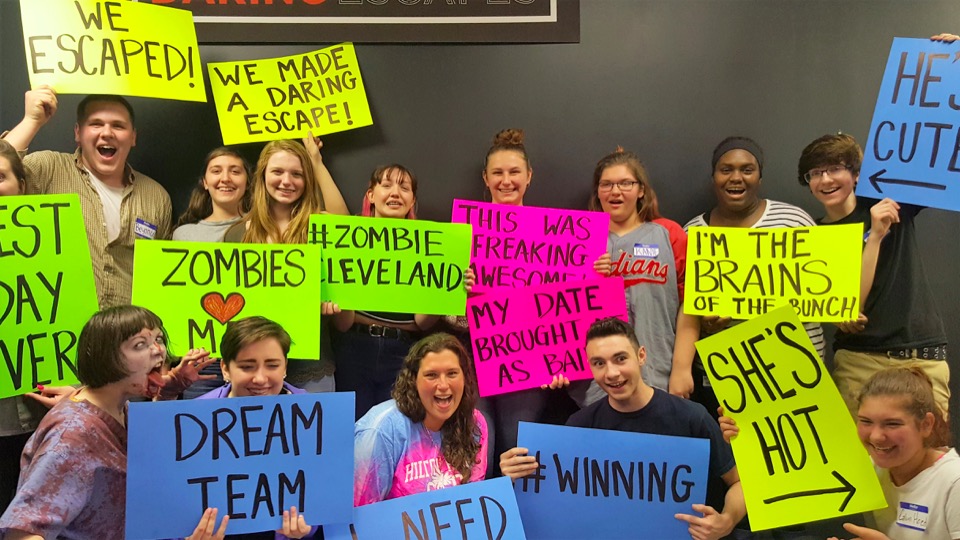 DARING ESCAPES
WE
ESCAPED!
WE MADE
A DARING
ESCAPE!
HE'S
CUTE
EST
DAY
VER
ZOMBIES
M
#ZOMBIE
CLEVELAND
THIS WAS
FREAKING
AWESOME!
MY DATE
BROUGHT
AS BAI
Indians
I'M THE
BRAINS
OF THE BUNCH
SHE'S
HOT
DREAM
TEAM
NEED
#WINNING